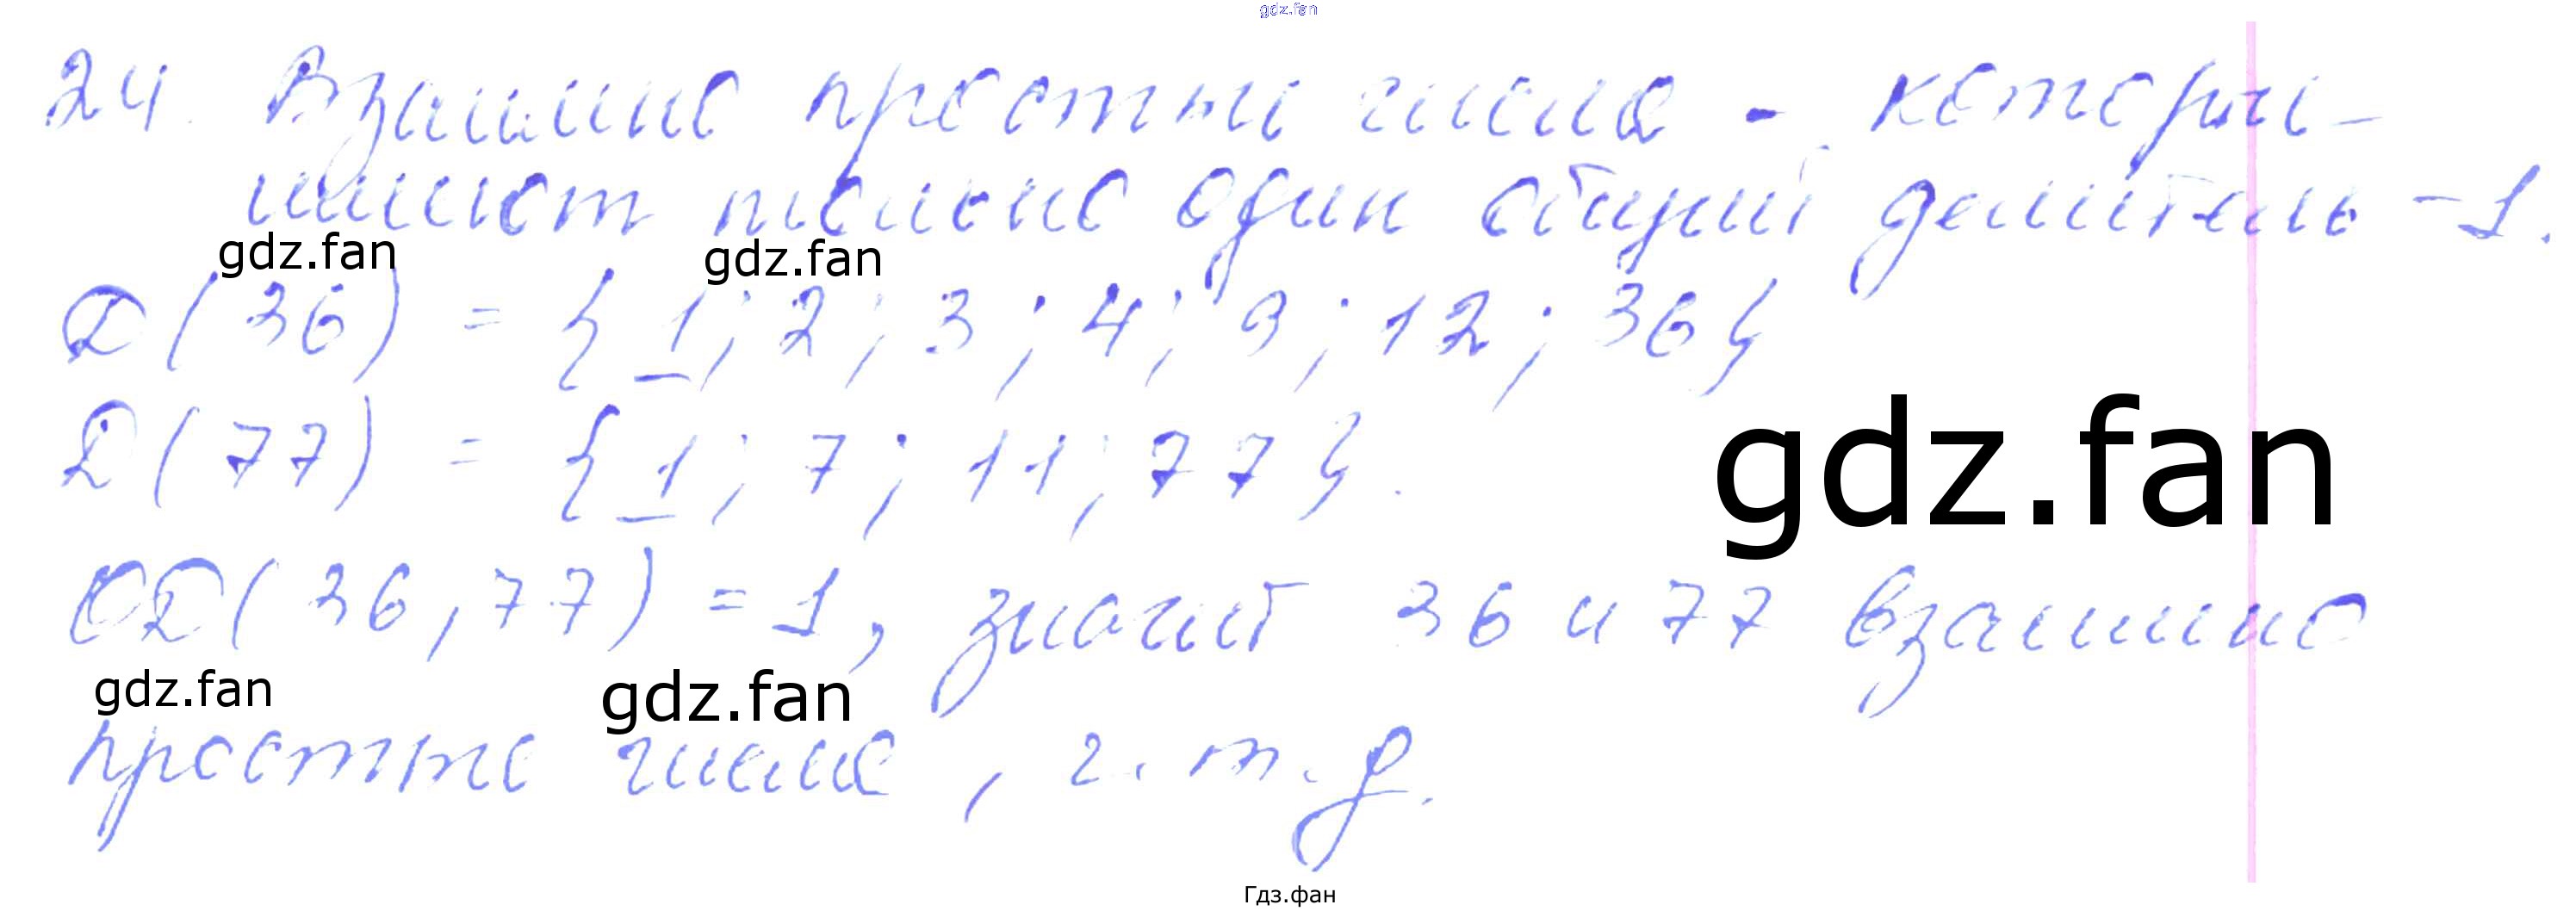 gdz.fan
24. Взаимно простые числа - которые
имеют только один общий делитель - 1.
gdz.fan gdz.fan
D(36) = {1; 2; 3; 4; 9; 12; 36}
D(77) = {1; 7; 11; 77}.
gdz.fan
OD(36, 77) = 1, значит 36 и 77 взаимно
gdz.fan gdz.fan
простые числа, ч. т. д.
Гдз.фан